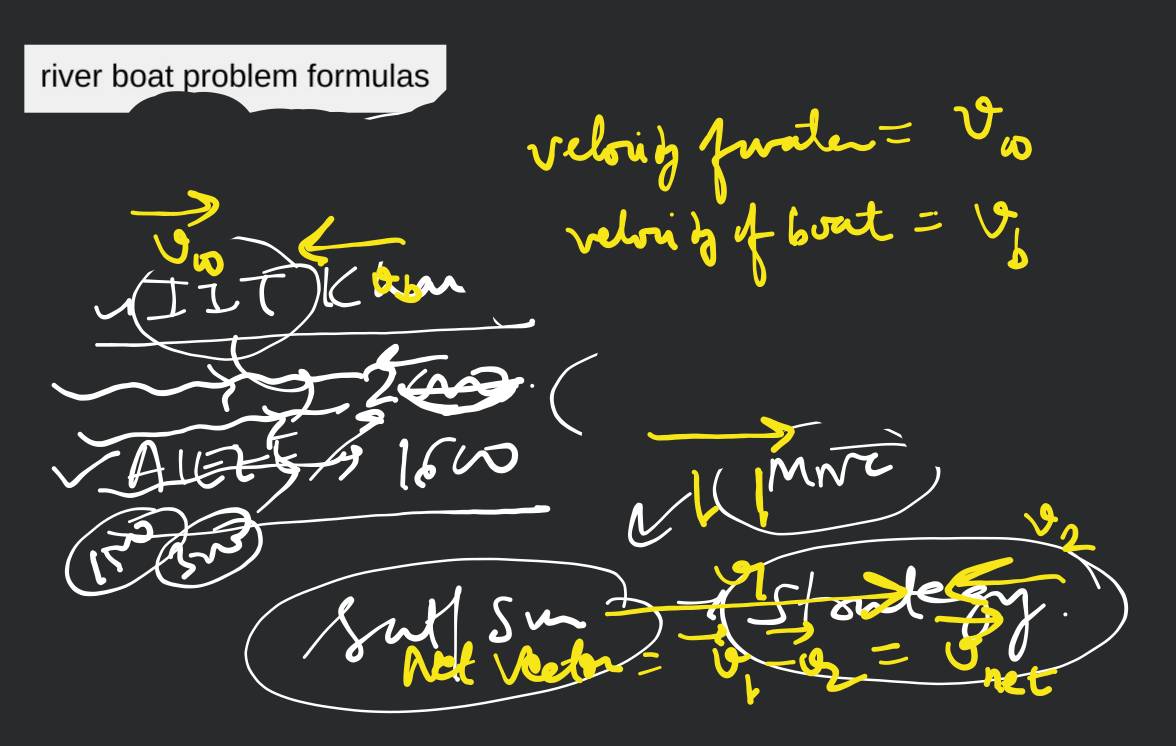 river boat problem formulas
velocity of water = v_w
velocity of boat = v_b
v_w
v_b
IIT K
2
AIEEE → 1600
MNC
v_2
Sat | Sun → Strategy.
v_1
Net vector = v_1 - v_2 = v_net